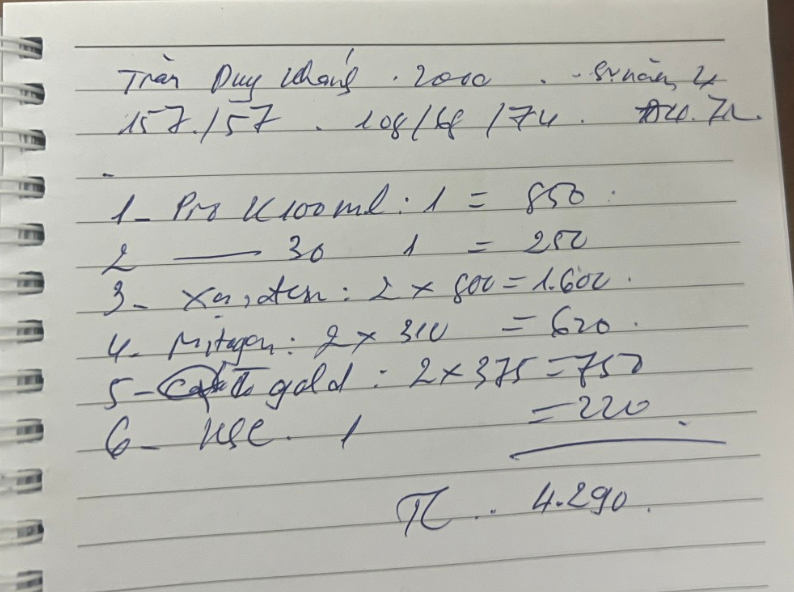 Trần Duy Khánh . 2000 .
157./57 . 108/68 /74 .
1_ Pro K 100ml : 1 = 850 .
2 —— 30 1 = 250
3 - : 2 x 800 = 1.600 .
4 - Mitagen : 2 x 310 = 620 .
5 - gold : 2 x 375 = 750
6 - KSC . 1 = 220 .
TC .. 4.290 .